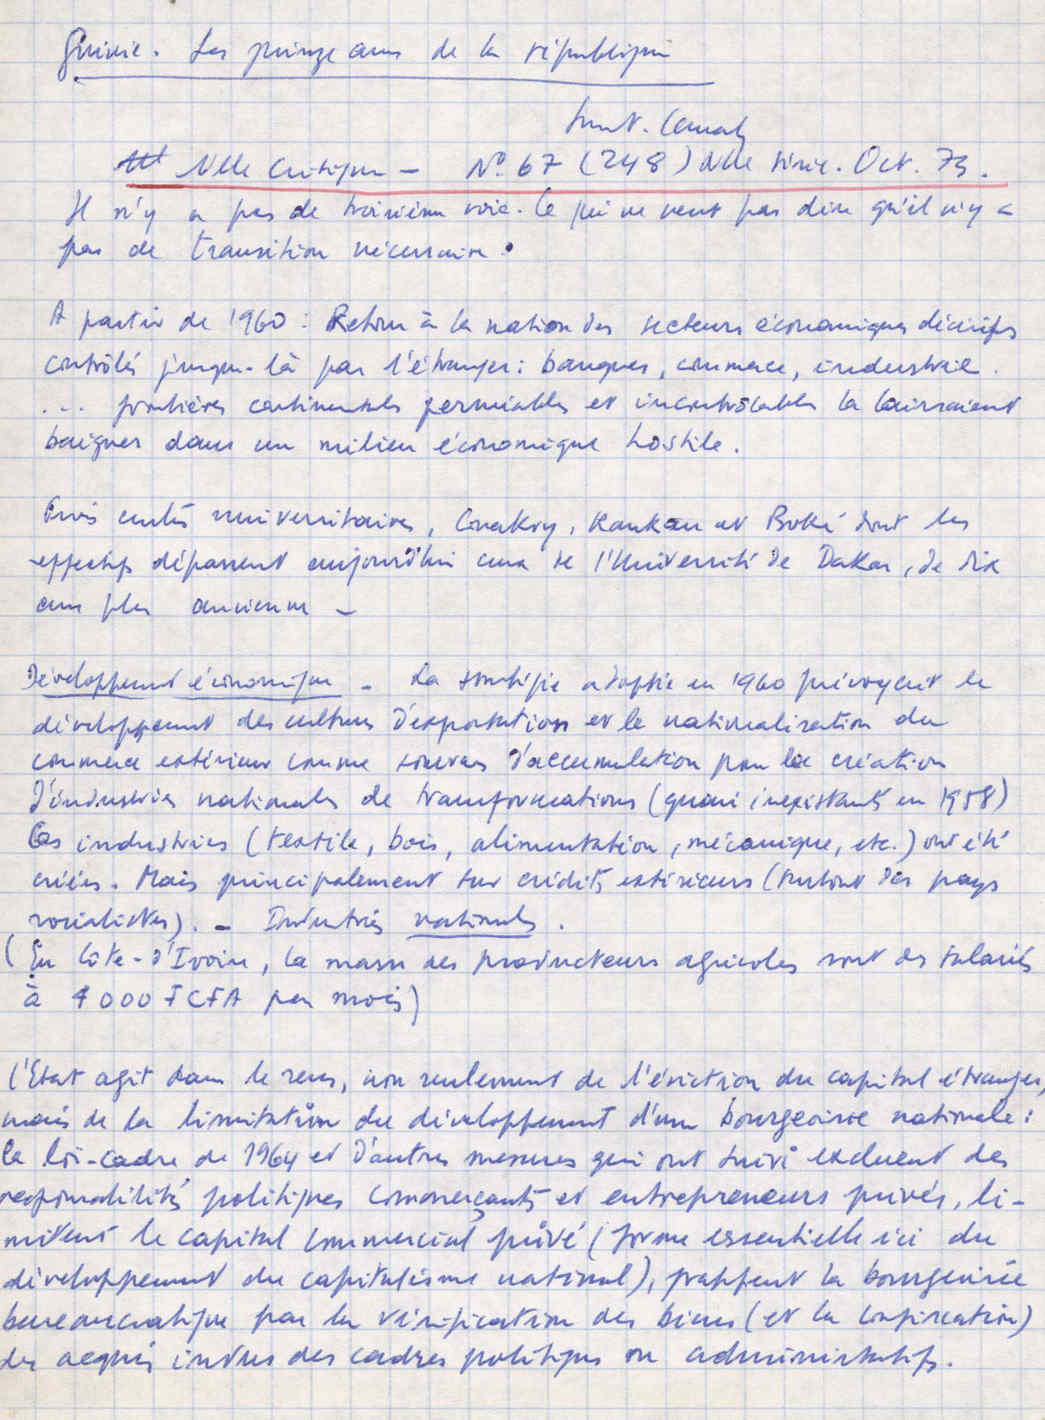 Guinée. Les quinze ans de la république
Suret. Canal
Nlle Critique - No. 67 (248) Nlle série. Oct. 73.
Il n'y a pas de troisième voie. Ce qui ne veut pas dire qu'il n'y a
pas de transition nécessaire.
A partir de 1960 : Retour à la nation des secteurs économiques décisifs
contrôlés jusque-là par l'étranger : banques, commerce, industrie.
... frontières continentales perméables et incontrôlables la laissaient
baigner dans un milieu économique hostile.
Trois centres universitaires, Conakry, Kankan et Boké dont les
effectifs dépassent aujourd'hui ceux de l'Université de Dakar, de dix
ans plus ancienne -
Développement économique - La stratégie adoptée en 1960 prévoyait le
développement des cultures d'exportation et la nationalisation du
commerce extérieur comme sources d'accumulation pour la création
d'industries nationales de transformations (quasi inexistantes en 1958)
Ces industries (textile, bois, alimentation, mécanique, etc.) ont été
créées. Mais principalement sur crédits extérieurs (surtout des pays
socialistes). - Industries nationales.
(En Côte-d'Ivoire, la masse des producteurs agricoles sont des salariés
à 4000 FCFA par mois)
L'Etat agit dans le sens, non seulement de l'éviction du capital étranger,
mais de la limitation du développement d'une bourgeoisie nationale :
la loi-cadre de 1964 et d'autres mesures qui ont suivi excluent des
responsabilités politiques commerçants et entrepreneurs privés, li-
mitent le capital commercial privé (forme essentielle ici du
développement du capitalisme national), frappent la bourgeoisie
bureaucratique par la vérification des biens (et la confiscation)
des acquis indus des cadres politiques ou administratifs.